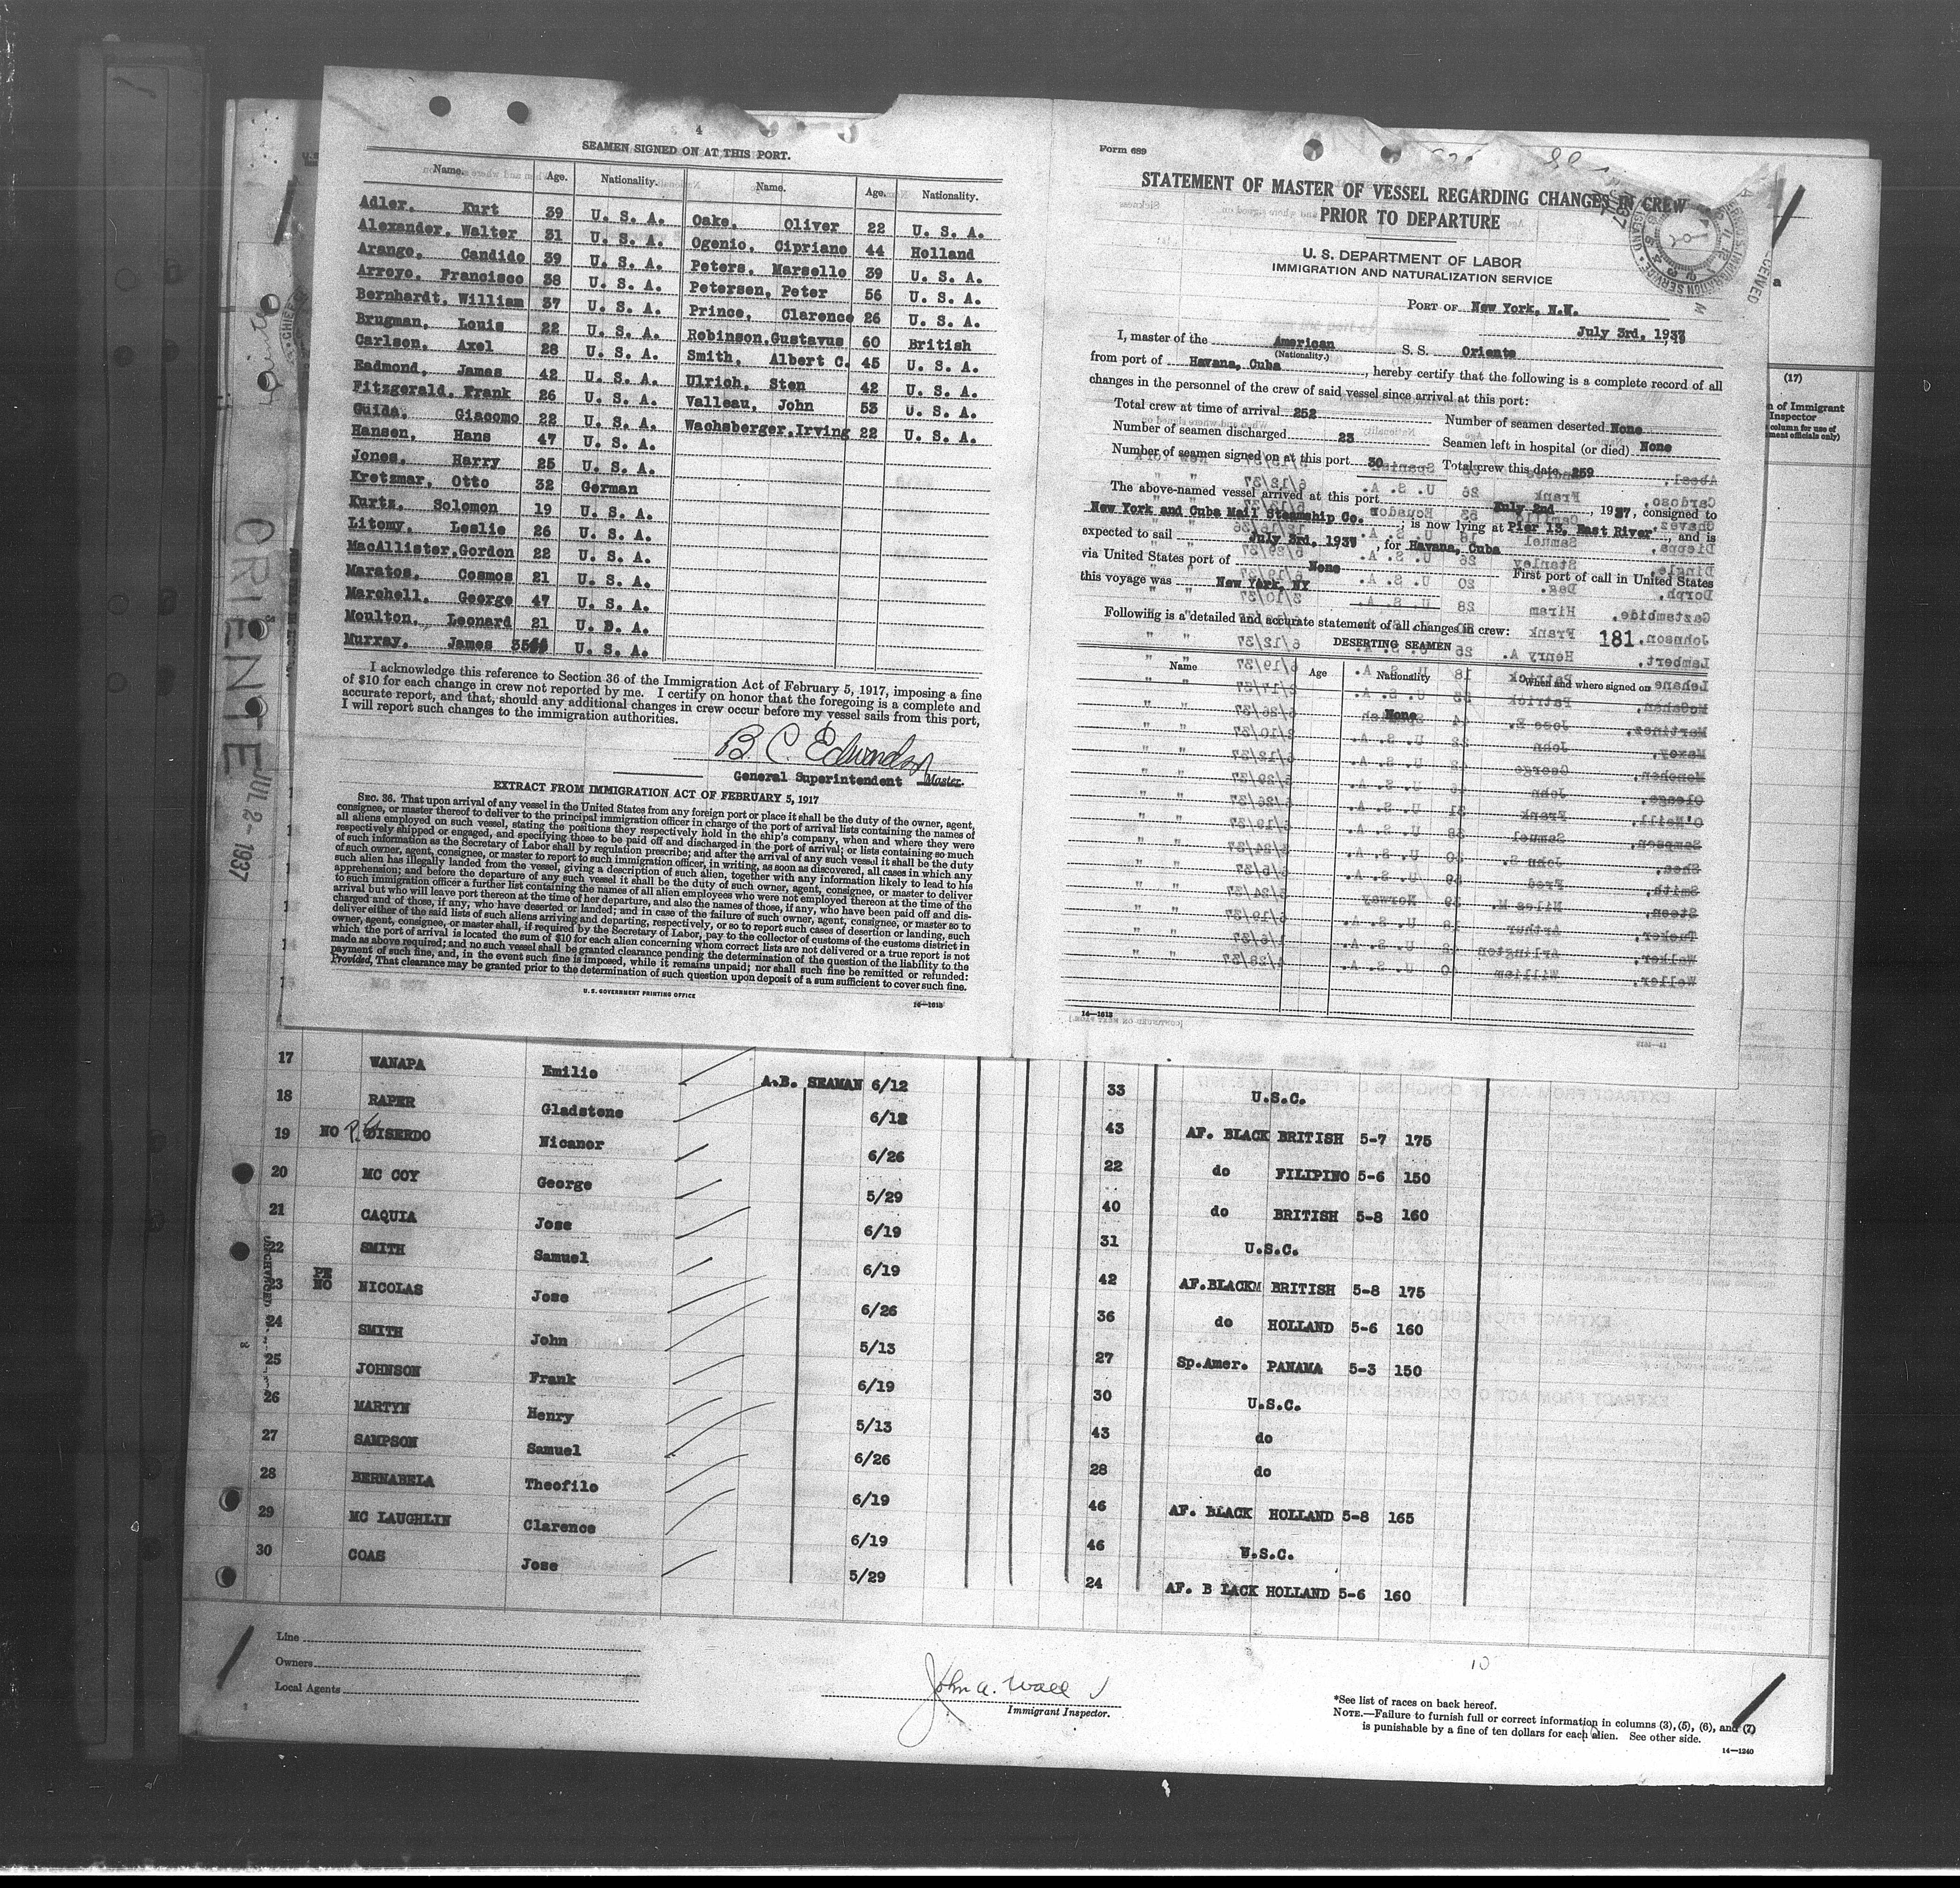 4
SEAMEN SIGNED ON AT THIS PORT.
Name. Age. Nationality. Name. Age. Nationality.
Adler, Kurt 39 U. S. A. Oake, Oliver 22 U. S. A.
Alexander, Walter 31 U. S. A. Ogenio, Cipriano 44 Holland
Arango, Candido 39 U. S. A. Peters, Marsello 39 U. S. A.
Arroyo, Francisco 38 U. S. A. Petersen, Peter 56 U. S. A.
Bernhardt, William 37 U. S. A. Prince, Clarence 26 U. S. A.
Brugman, Louis 22 U. S. A. Robinson, Gustavus 60 British
Carlson, Axel 28 U. S. A. Smith, Albert C. 45 U. S. A.
Eadmond, James 42 U. S. A. Ulrich, Sten 42 U. S. A.
Fitzgerald, Frank 26 U. S. A. Valleau, John 53 U. S. A.
Guida, Giacomo 22 U. S. A. Wachsberger, Irving 22 U. S. A.
Hansen, Hans 47 U. S. A.
Jones, Harry 25 U. S. A.
Kretzmar, Otto 32 German
Kurtz, Solomon 19 U. S. A.
Litomy, Leslie 26 U. S. A.
MacAllister, Gordon 22 U. S. A.
Maratos, Cosmos 21 U. S. A.
Marchell, George 47 U. S. A.
Moulton, Leonard 21 U. S. A.
Murray, James 35 U. S. A.
I acknowledge this reference to Section 36 of the Immigration Act of February 5, 1917, imposing a fine
of $10 for each change in crew not reported by me. I certify on honor that the foregoing is a complete and
accurate report, and that, should any additional changes in crew occur before my vessel sails from this port,
I will report such changes to the immigration authorities.
B. C. Edwardson
General Superintendent Master.
EXTRACT FROM IMMIGRATION ACT OF FEBRUARY 5, 1917
SEC. 36. That upon arrival of any vessel in the United States from any foreign port or place it shall be the duty of the owner, agent,
consignee, or master thereof to deliver to the principal immigration officer in charge of the port of arrival lists containing the names of
all aliens employed on such vessel, stating the positions they respectively hold in the ship's company, when and where they were
respectively shipped or engaged, and specifying those to be paid off and discharged in the port of arrival; or lists containing so much
of such information as the Secretary of Labor shall by regulation prescribe; and after the arrival of any such vessel it shall be the duty
of such owner, agent, consignee, or master to report to such immigration officer, in writing, as soon as discovered, all cases in which any
such alien has illegally landed from the vessel, giving a description of such alien, together with any information likely to lead to his
apprehension; and before the departure of any such vessel it shall be the duty of such owner, agent, consignee, or master to deliver
to such immigration officer a further list containing the names of all alien employees who were not employed thereon at the time of the
arrival but who will leave port thereon at the time of her departure, and also the names of those, if any, who have been paid off and dis-
charged and of those, if any, who have deserted or landed; and in case of the failure of such owner, agent, consignee, or master so to
deliver either of the said lists of such aliens arriving and departing, respectively, or so to report such cases of desertion or landing, such
owner, agent, consignee, or master, shall, if required by the Secretary of Labor, pay to the collector of customs of the customs district in
which the port of arrival is located the sum of $10 for each alien concerning whom correct lists are not delivered or a true report is not
made as above required; and no such vessel shall be granted clearance pending the determination of the question of the liability to the
payment of such fine, and, in the event such fine is imposed, while it remains unpaid; nor shall such fine be remitted or refunded:
Provided, That clearance may be granted prior to the determination of such question upon deposit of a sum sufficient to cover such fine.
U. S. GOVERNMENT PRINTING OFFICE 14—1613
Form 689
STATEMENT OF MASTER OF VESSEL REGARDING CHANGES IN CREW
PRIOR TO DEPARTURE
U. S. DEPARTMENT OF LABOR
IMMIGRATION AND NATURALIZATION SERVICE
PORT OF New York, N.W.
July 3rd, 1937
I, master of the American S. S. Oriente
(Nationality.)
from port of Havana, Cuba, hereby certify that the following is a complete record of all
changes in the personnel of the crew of said vessel since arrival at this port:
Total crew at time of arrival 252 Number of seamen deserted None
Number of seamen discharged 23 Seamen left in hospital (or died) None
Number of seamen signed on at this port 30 Total crew this date 259
The above-named vessel arrived at this port July 2nd, 1937, consigned to
New York and Cuba Mail Steamship Co.; is now lying at Pier 13, East River, and is
expected to sail July 3rd, 1937, for Havana, Cuba
via United States port of None First port of call in United States
this voyage was New York, NY
Following is a detailed and accurate statement of all changes in crew: 181.
DESERTING SEAMEN
Name Age Nationality When and where signed on
None
14—1613
(17)
n of Immigrant
Inspector
column for use of
ment officials only)
ORIENTE
JUL 2- 1937
17 WANAPA Emilio A.B. SEAMAN 6/12 33 U.S.C.
18 RAPER Gladstone 6/12 43 AF. BLACK BRITISH 5-7 175
19 NO DISERDO Nicanor 6/26 22 do FILIPINO 5-6 150
20 MC COY George 5/29 40 do BRITISH 5-8 160
21 CAQUIA Jose 6/19 31 U.S.C.
22 SMITH Samuel 6/19 42 AF.BLACKM BRITISH 5-8 175
23 PE NO NICOLAS Jose 6/26 36 do HOLLAND 5-6 160
24 SMITH John 5/13 27 Sp.Amer. PANAMA 5-3 150
25 JOHNSON Frank 6/19 30 U.S.C.
26 MARTYN Henry 5/13 43 do
27 SAMPSON Samuel 6/26 28 do
28 BERNABELA Theofilo 6/19 46 AF. BLACK HOLLAND 5-8 165
29 MC LAUGHLIN Clarence 6/19 46 U.S.C.
30 COAS Jose 5/29 24 AF. B LACK HOLLAND 5-6 160
Line
Owners
Local Agents
John A. Wall
Immigrant Inspector.
10
*See list of races on back hereof.
NOTE.—Failure to furnish full or correct information in columns (3), (5), (6), and (7)
is punishable by a fine of ten dollars for each alien. See other side.
14—1240